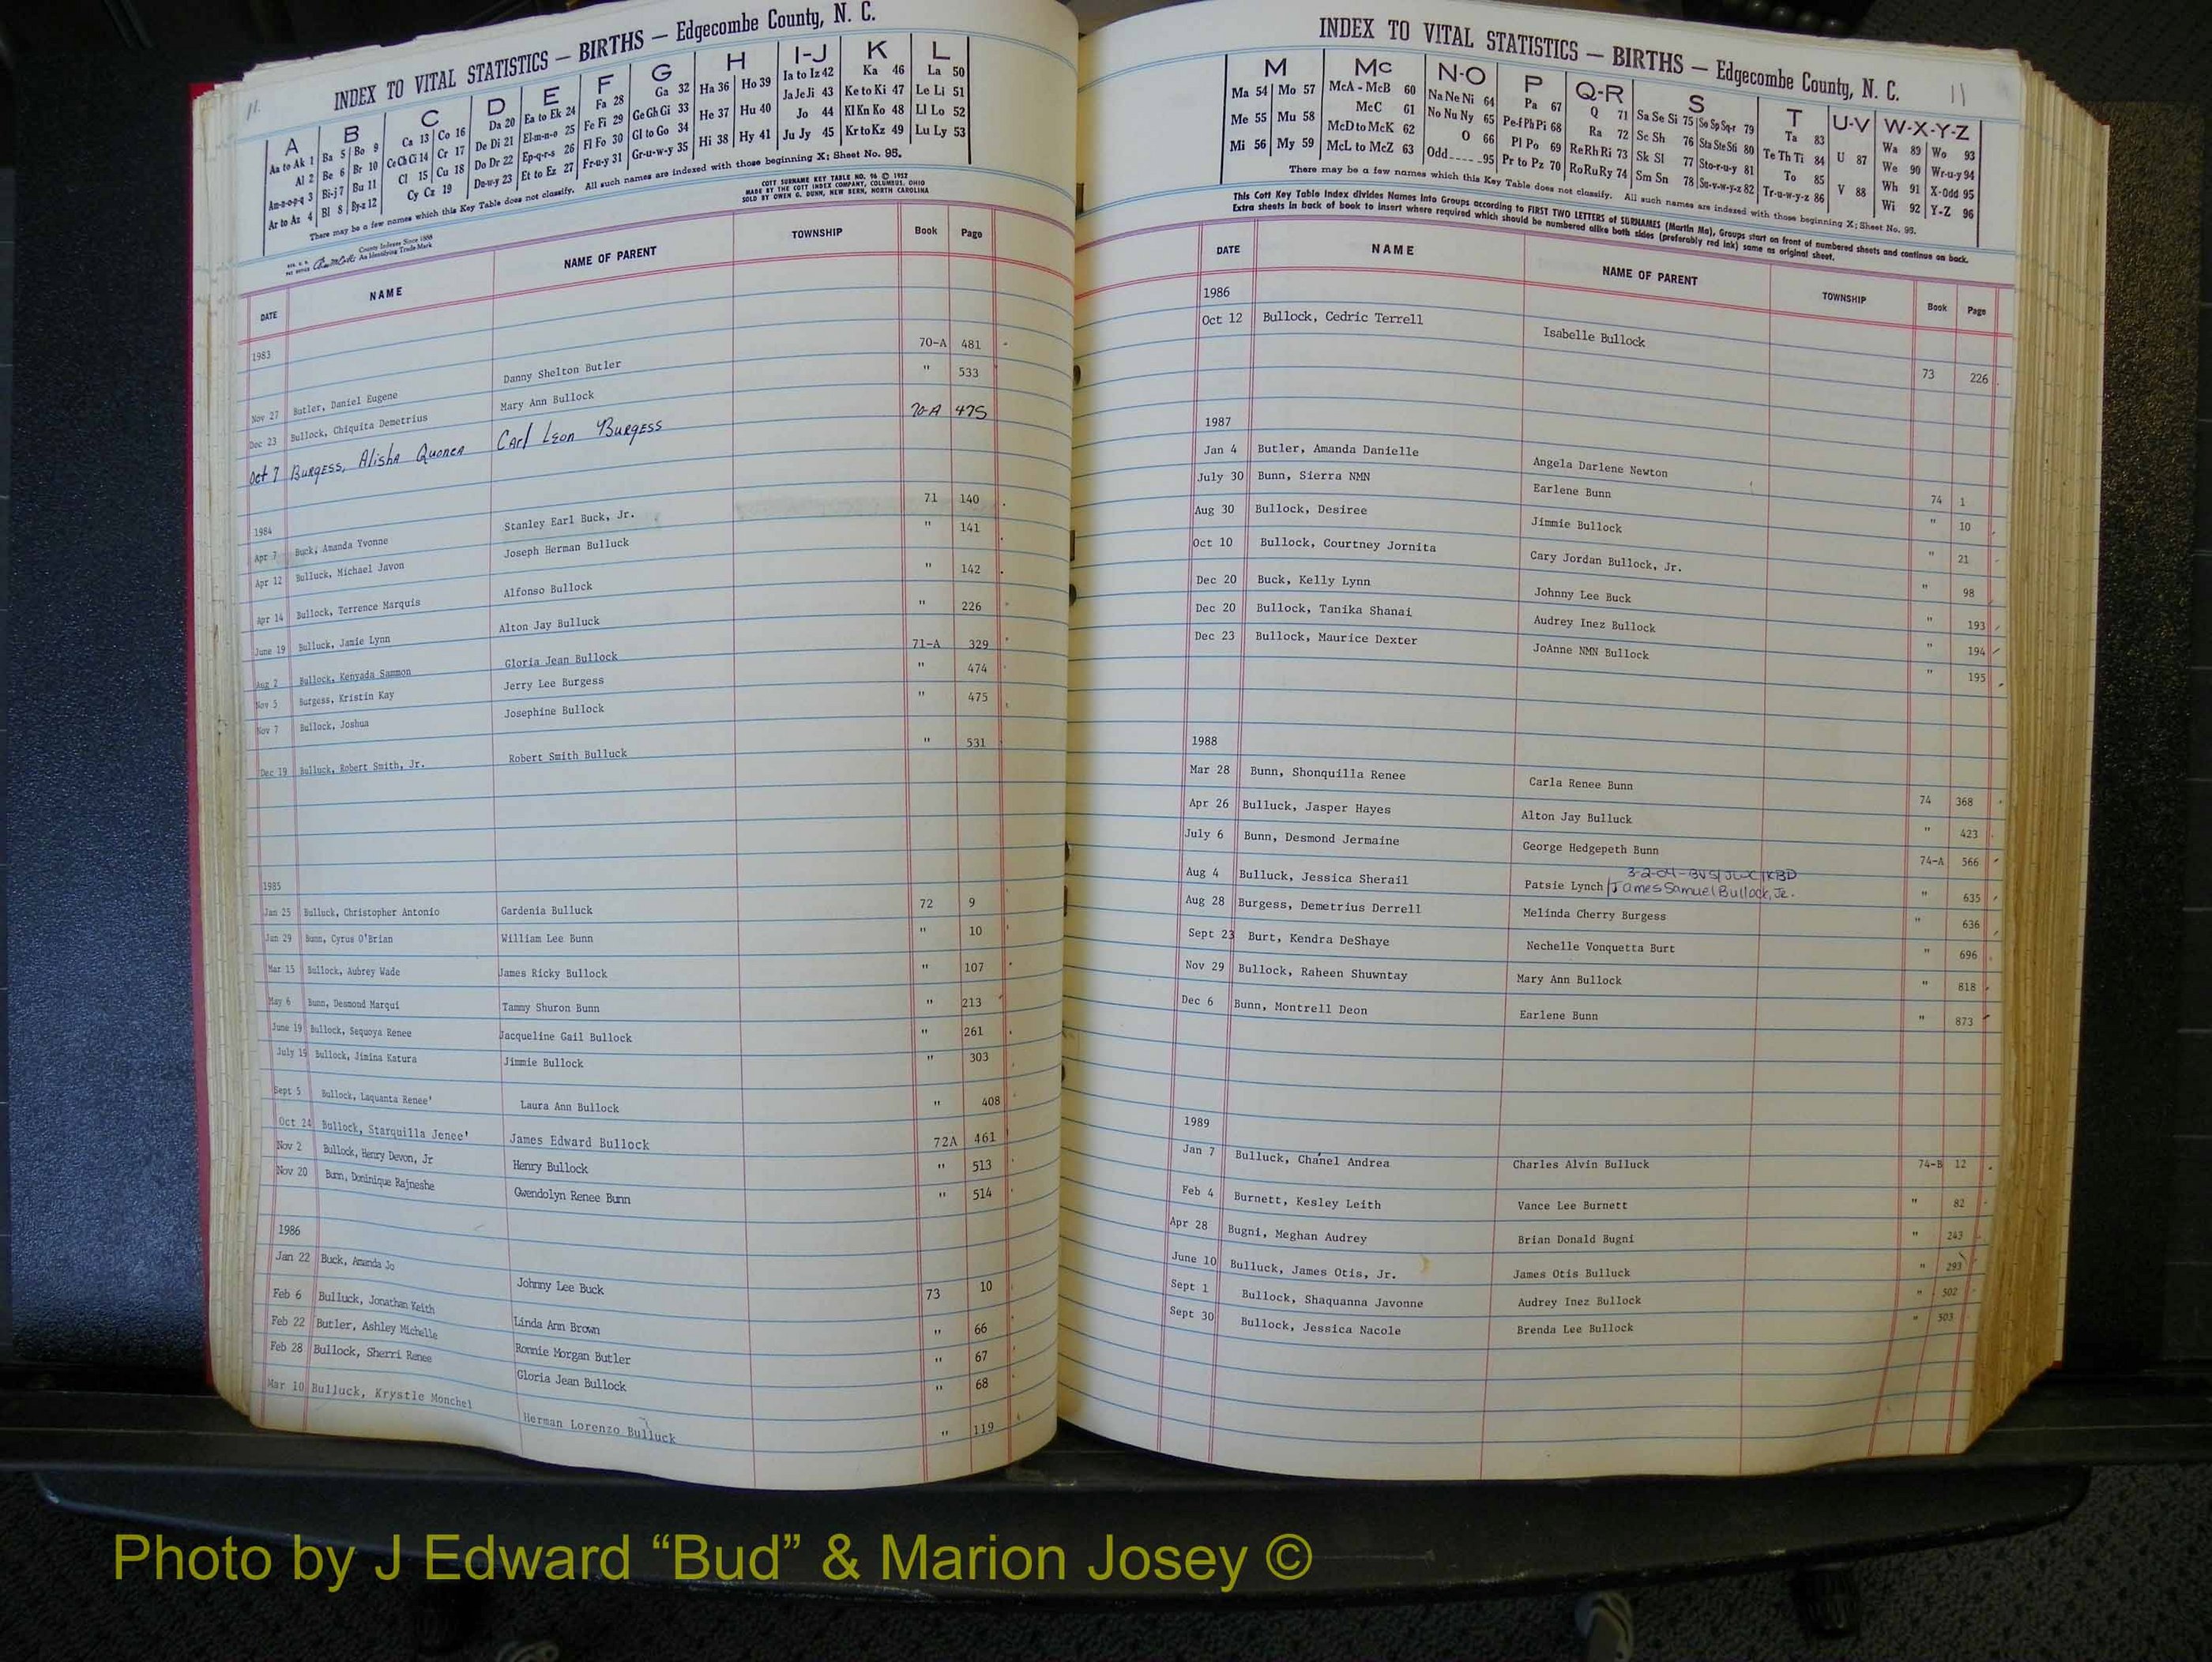 11.
INDEX TO VITAL STATISTICS — BIRTHS — Edgecombe County, N. C.
A B C D E F G H I-J K L
Aa to Ak 1 Ba 5 Bo 9 Ca 13 Co 16 Da 20 Ea to Ek 24 Fa 28 Ga 32 Ha 36 Ho 39 Ia to Iz 42 Ka 46 La 50
Al 2 Be 6 Br 10 Ce Ch Ci 14 Cr 17 De Di 21 El-m-n-o 25 Fe Fi 29 Ge Gh Gi 33 He 37 Hu 40 Ja Je Ji 43 Ke to Ki 47 Le Li 51
Am-n-o-p-q 3 Bi-j 7 Bu 11 Cl 15 Cu 18 Do Dr 22 Ep-q-r-s 26 Fl Fo 30 Gl to Go 34 Hi 38 Hy 41 Jo 44 Kl Kn Ko 48 Ll Lo 52
Ar to Az 4 Bl 8 By-z 12 Cy Cz 19 Du-w-y 23 Et to Ez 27 Fr-u-y 31 Gr-u-w-y 35 Ju Jy 45 Kr to Kz 49 Lu Ly 53
There may be a few names which this Key Table does not classify. All such names are indexed with those beginning X; Sheet No. 95.
County Indexes Since 1888
An Identifying Trade Mark
COTT SURNAME KEY TABLE NO. 96 © 1952
MADE BY THE COTT INDEX COMPANY, COLUMBUS, OHIO
SOLD BY OWEN G. DUNN, NEW BERN, NORTH CAROLINA
DATE NAME NAME OF PARENT TOWNSHIP Book Page
1983
Nov 27 Butler, Daniel Eugene Danny Shelton Butler 70-A 481
Dec 23 Bullock, Chiquita Demetrius Mary Ann Bullock " 533
Oct 7 Burgess, Alisha Quonca Carl Leon Burgess 70-A 475
1984
Apr 7 Buck, Amanda Yvonne Stanley Earl Buck, Jr. 71 140
Apr 12 Bulluck, Michael Javon Joseph Herman Bulluck " 141
Apr 14 Bullock, Terrence Marquis Alfonso Bullock " 142
June 19 Bulluck, Jamie Lynn Alton Jay Bulluck " 226
Aug 2 Bullock, Kenyada Sammon Gloria Jean Bullock 71-A 329
Nov 5 Burgess, Kristin Kay Jerry Lee Burgess " 474
Nov 7 Bullock, Joshua Josephine Bullock " 475
Dec 19 Bulluck, Robert Smith, Jr. Robert Smith Bulluck " 531
1985
Jan 25 Bulluck, Christopher Antonio Gardenia Bulluck 72 9
Jan 29 Bunn, Cyrus O'Brian William Lee Bunn " 10
Mar 15 Bullock, Aubrey Wade James Ricky Bullock " 107
May 6 Bunn, Desmond Marqui Tammy Shuron Bunn " 213
June 19 Bullock, Sequoya Renee Jacqueline Gail Bullock " 261
July 15 Bullock, Jimina Katura Jimmie Bullock " 303
Sept 5 Bullock, Laquanta Renee' Laura Ann Bullock " 408
Oct 24 Bullock, Starquilla Jenee' James Edward Bullock 72A 461
Nov 2 Bullock, Henry Devon, Jr Henry Bullock " 513
Nov 20 Bunn, Dominique Rajneshe Gwendolyn Renee Bunn " 514
1986
Jan 22 Buck, Amanda Jo Johnny Lee Buck 73 10
Feb 6 Bulluck, Jonathan Keith Linda Ann Brown " 66
Feb 22 Butler, Ashley Michelle Ronnie Morgan Butler " 67
Feb 28 Bullock, Sherri Renee Gloria Jean Bullock " 68
Mar 10 Bulluck, Krystle Monchel Herman Lorenzo Bulluck " 119
INDEX TO VITAL STATISTICS — BIRTHS — Edgecombe County, N. C. 11
M Mc N-O P Q-R S T U-V W-X-Y-Z
Ma 54 Mo 57 McA - McB 60 Na Ne Ni 64 Pa 67 Q 71 Sa Se Si 75 So Sp Sq-r 79 Ta 83 Wa 89 Wo 93
Me 55 Mu 58 McC 61 No Nu Ny 65 Pe-f Ph Pi 68 Ra 72 Sc Sh 76 Sta Ste Sti 80 Te Th Ti 84 U 87 We 90 Wr-u-y 94
Mi 56 My 59 McD to McK 62 O 66 Pl Po 69 Re Rh Ri 73 Sk Sl 77 Sto-r-u-y 81 To 85 V 88 Wh 91 X-Odd 95
McL to McZ 63 Odd 95 Pr to Pz 70 Ro Ru Ry 74 Sm Sn 78 Su-v-w-y-z 82 Tr-u-w-y-z 86 Wi 92 Y-Z 96
There may be a few names which this Key Table does not classify. All such names are indexed with those beginning X; Sheet No. 95.
This Cott Key Table Index divides Names into Groups according to FIRST TWO LETTERS of SURNAMES (Martin Ma), Groups start on front of numbered sheets and continue on back.
Extra sheets in back of book to insert where required which should be numbered alike both sides (preferably red ink) same as original sheet.
DATE NAME NAME OF PARENT TOWNSHIP Book Page
1986
Oct 12 Bullock, Cedric Terrell Isabelle Bullock 73 226
1987
Jan 4 Butler, Amanda Danielle Angela Darlene Newton 74 1
July 30 Bunn, Sierra NMN Earlene Bunn " 10
Aug 30 Bullock, Desiree Jimmie Bullock " 21
Oct 10 Bullock, Courtney Jornita Cary Jordan Bullock, Jr. " 98
Dec 20 Buck, Kelly Lynn Johnny Lee Buck " 193
Dec 20 Bullock, Tanika Shanai Audrey Inez Bullock " 194
Dec 23 Bullock, Maurice Dexter JoAnne NMN Bullock " 195
1988
Mar 28 Bunn, Shonquilla Renee Carla Renee Bunn 74 368
Apr 26 Bulluck, Jasper Hayes Alton Jay Bulluck " 423
July 6 Bunn, Desmond Jermaine George Hedgepeth Bunn 74-A 566
3-2-04-BVS/JWC/KBD
Aug 4 Bulluck, Jessica Sherail Patsie Lynch/James Samuel Bullock, Jr. " 635
Aug 28 Burgess, Demetrius Derrell Melinda Cherry Burgess " 636
Sept 23 Burt, Kendra DeShaye Nechelle Vonquetta Burt " 696
Nov 29 Bullock, Raheen Shuwntay Mary Ann Bullock " 818
Dec 6 Bunn, Montrell Deon Earlene Bunn " 873
1989
Jan 7 Bulluck, Chanel Andrea Charles Alvin Bulluck 74-B 12
Feb 4 Burnett, Kesley Leith Vance Lee Burnett " 82
Apr 28 Bugni, Meghan Audrey Brian Donald Bugni " 243
June 10 Bulluck, James Otis, Jr. James Otis Bulluck " 293
Sept 1 Bullock, Shaquanna Javonne Audrey Inez Bullock " 502
Sept 30 Bullock, Jessica Nacole Brenda Lee Bullock " 503
Photo by J Edward “Bud” & Marion Josey ©